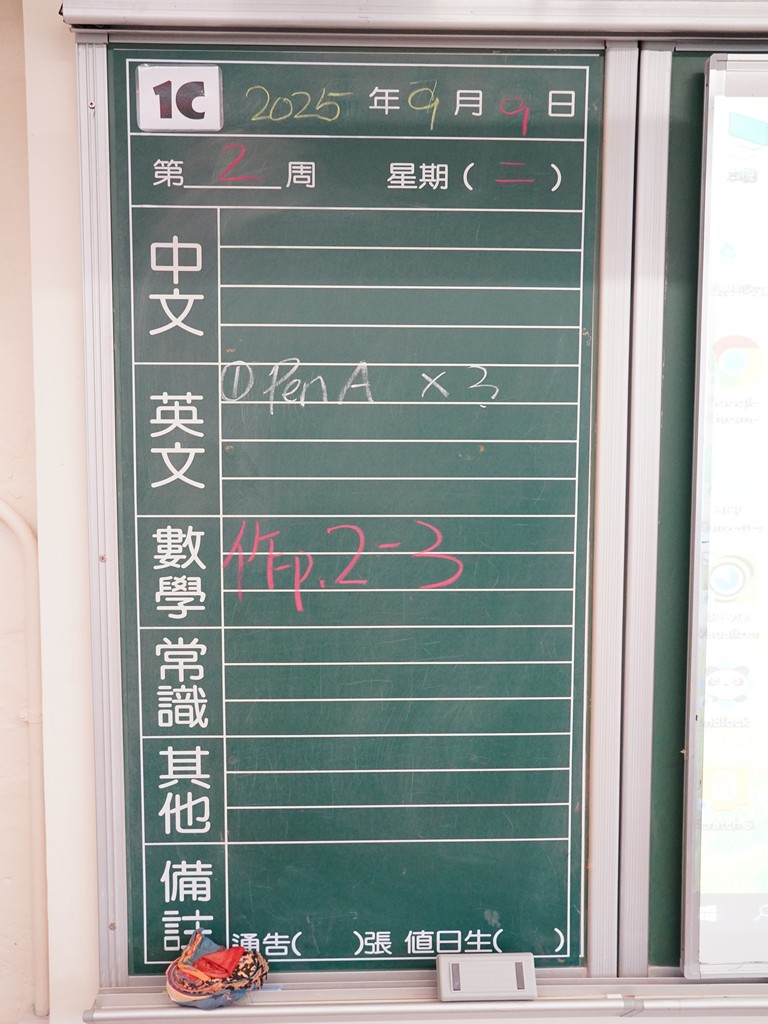 1C 2025 年 9 月 9 日
第 2 周 星期( 二 )
中文
英文 ① Pen A × 3
數學 作p.2-3
常識
其他
備註 通告( )張 值日生( )